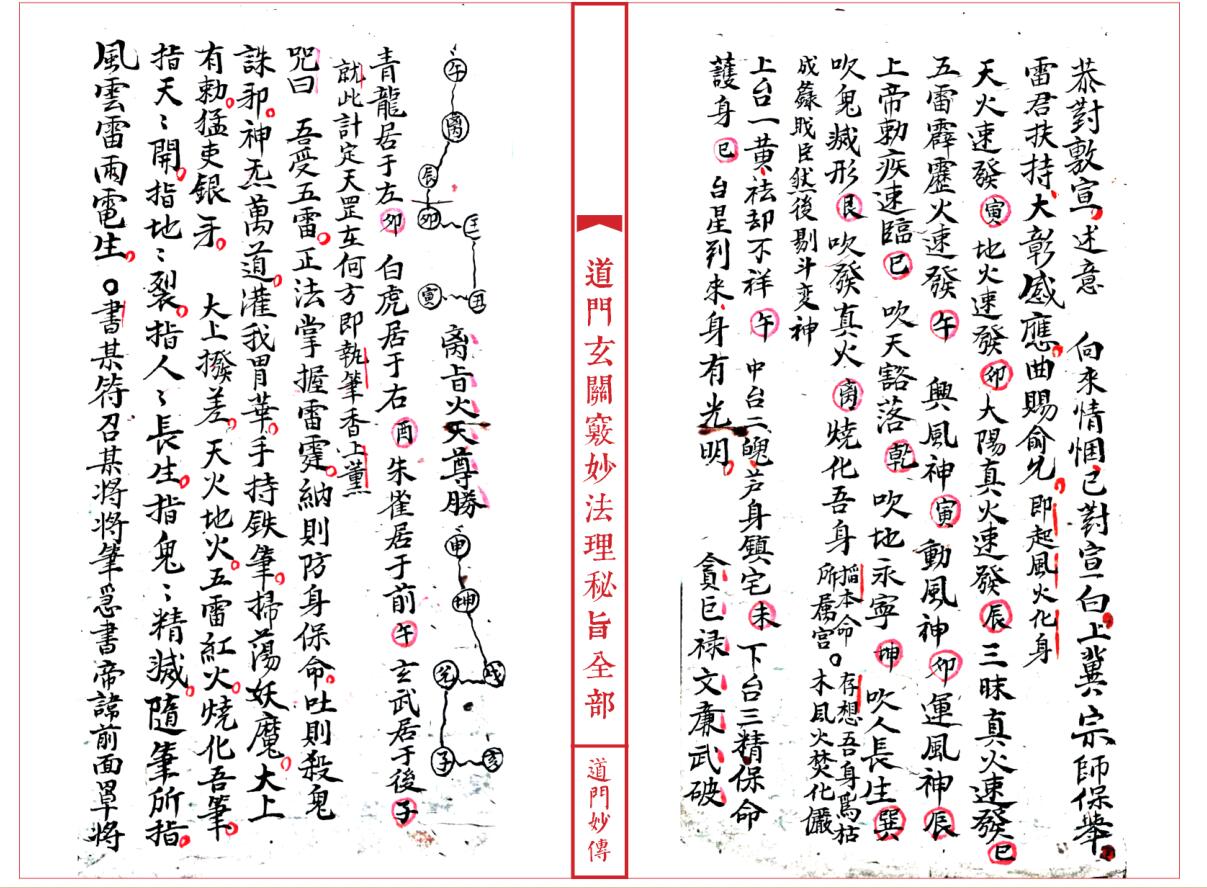 恭對敷宣。述意　向來情悃已對宣白。上冀宗師保舉。
雷君扶持、大彰感應。曲賜俞允。即起風火化身
天火速發寅地火速發卯大陽真火速發辰三昧真火速發巳
五雷霹靂火速發午　興風神寅動風神卯運風神辰
上帝勅疾速臨巳　吹天谿落乾　吹地永寧坤吹人長生巽
吹鬼滅形艮吹發真火离燒化吾身搯本命所属宮。存想吾身為枯木風火焚化儼
成籙戝臣然後剔斗变神
上台一黄祛却不祥午　中台二魄芦身鎮宅未　下台三精保命
護身巳　台星到来、身有光明。　貪巨禄文亷武破
道門玄關竅妙法理秘旨全部
道門妙傳
午
离
辰
卯
壬
丑
寅
离旨火天尊勝
申
坤
兑
戌
子
亥
青龍居于左卯　白虎居于右酉　朱雀居于前午　玄武居于後子
就此計定天罡在何方即執筆香上薰
咒曰　吾受五雷。正法掌握雷霆。納則防身保命。吐則殺鬼
誅邪。神炁萬道。灌我胃華。手持鉄筆。掃蕩妖魔。大上
有勅。猛吏銀牙。　大上撥差。天火地火。五雷紅火。燒化吾筆。
指天〻開。指地〻裂。指人〻長生。指鬼〻精滅。隨筆所指。
風雲雷雨電生。〇書某符召某將將筆急書帝諱前面罩將